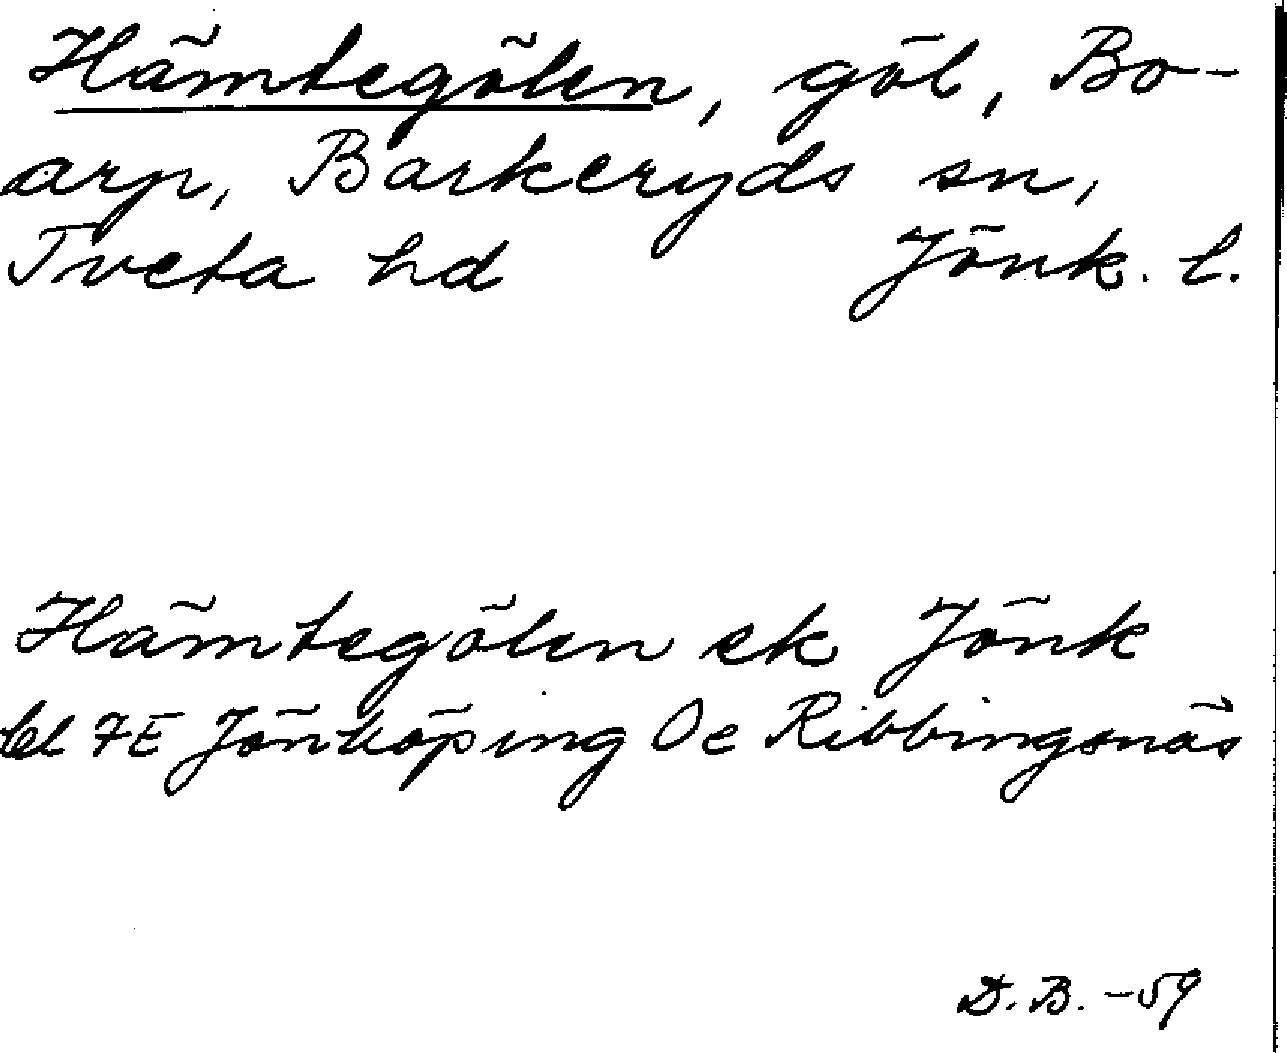 Hämtegölen, göl, Bo-
arp, Barkeryds sn,
Tveta hd Jönk. l.
Hämtegölen ek Jönk
bl 7E Jönköping Oe Ribbingsnäs
D.B. -59